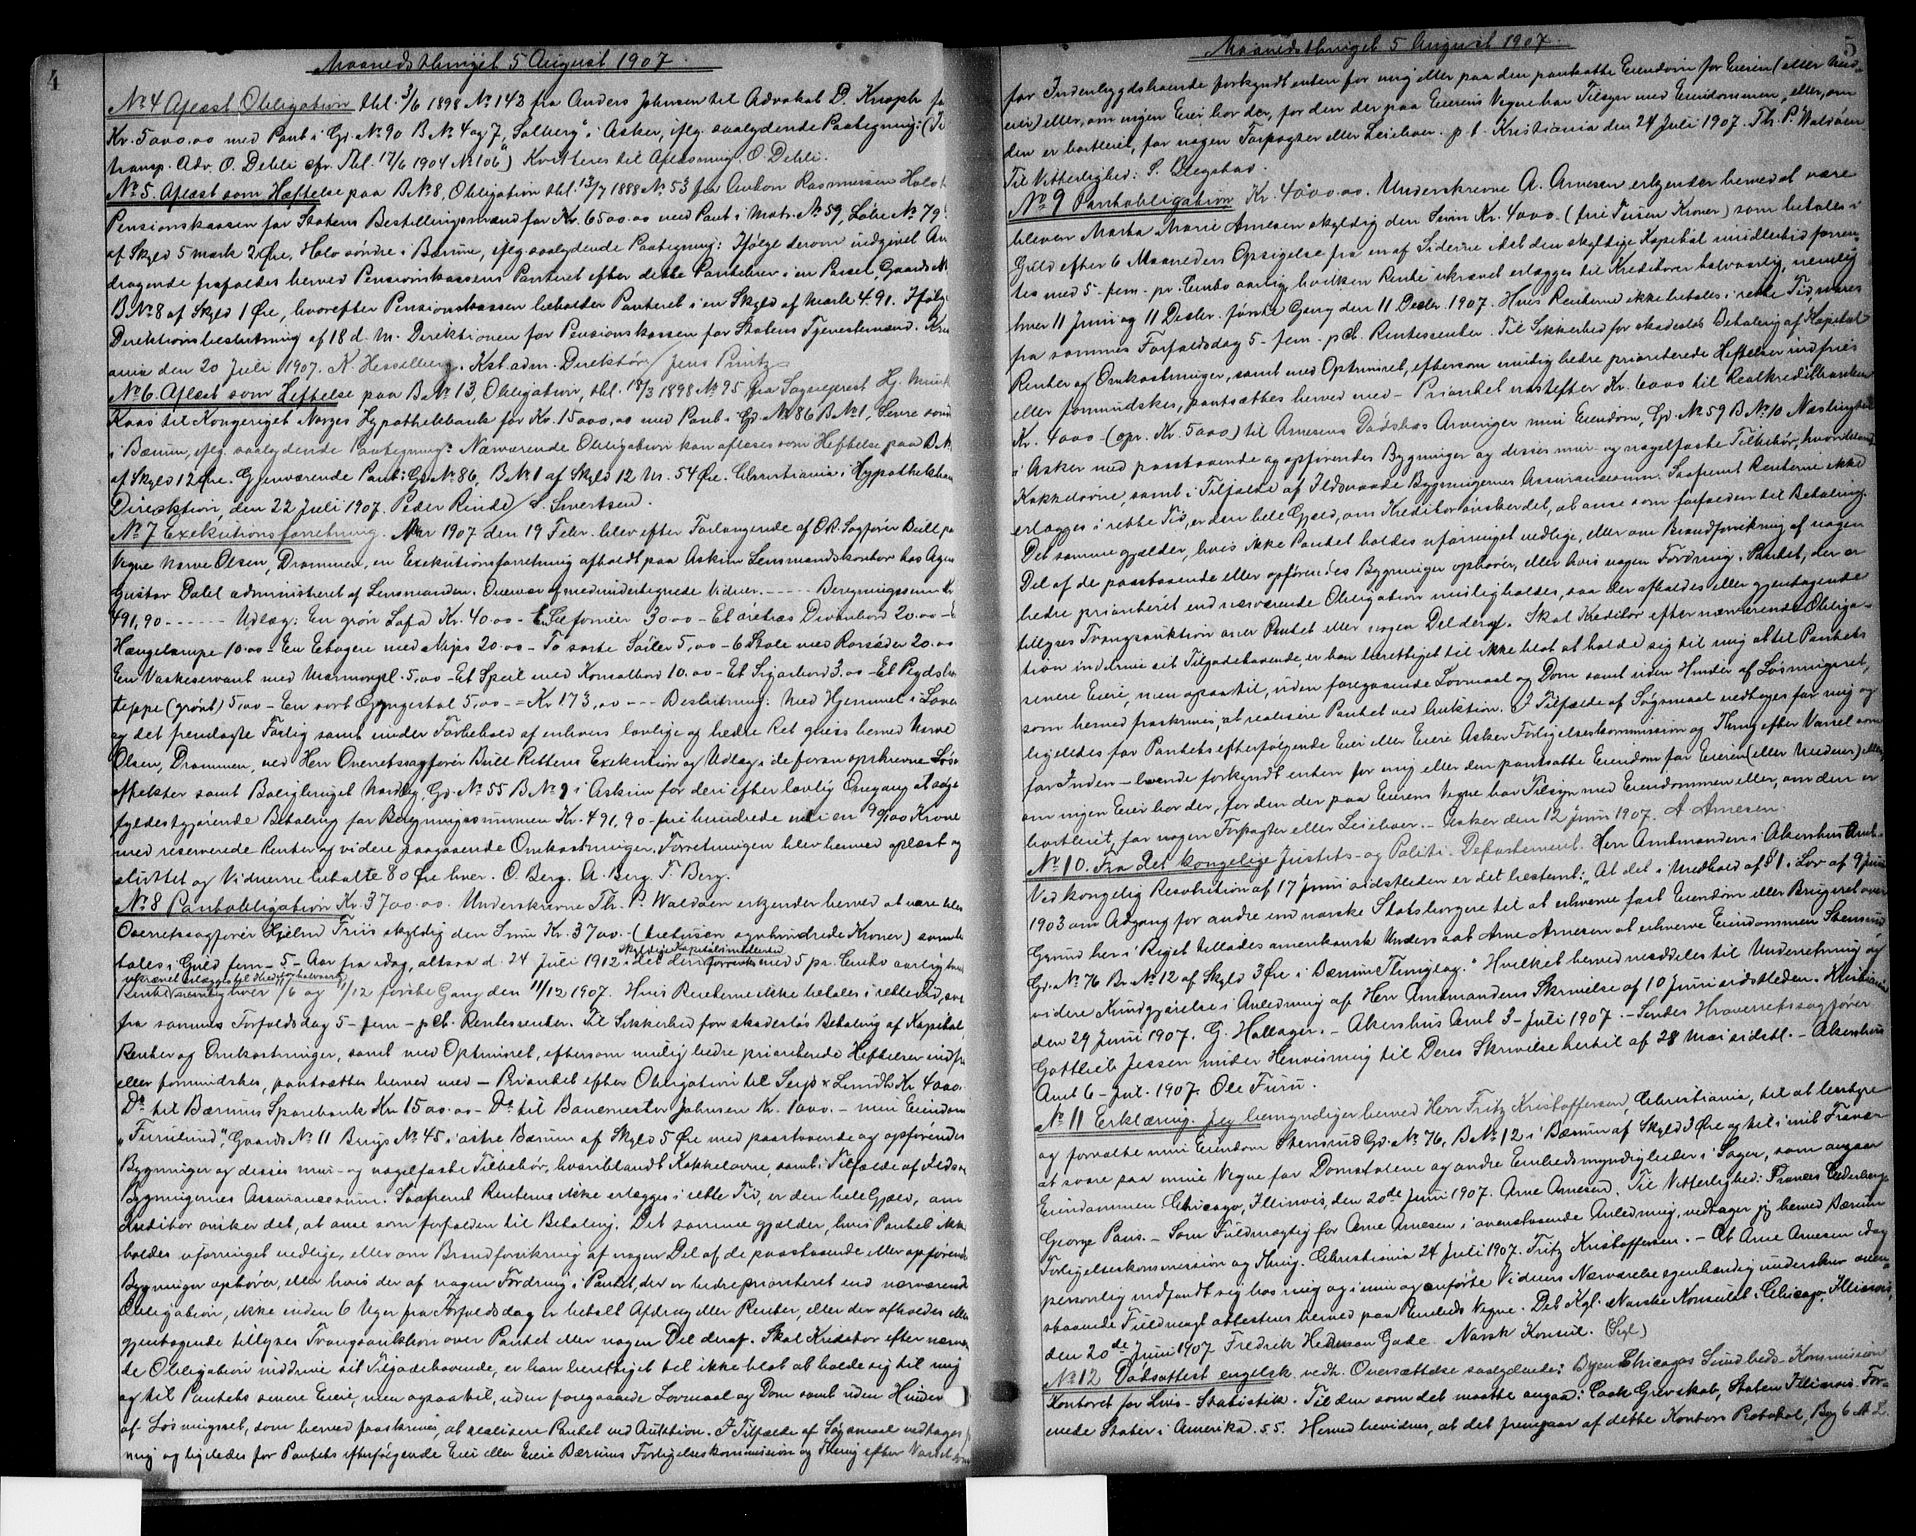 4
Maanedsthinget 5 August 1907.
No 4 Aflæst Obligation thl. 3/6 1898 No 143 fra Anders Johnsen til Advokat D. Knoph for
Kr. 5000.00 med Pant i Gd. No 90 B No 4 og 7 "Solberg" i Asker, iflg. saalydende Paategning: (
transp. Adv. O. Dehli cfr. Thl. 17/6 1904 No 106) Kvitteres til Aflæsning. O. Dehli.
No 5. Aflæst som Hæftelse paa B No 8, Obligation thl. 13/7 1888 No 53 fra Anton Rasmussen Holo t
Pensionskassen for Statens Bestillingsmænd for Kr. 6500.00 med Pant i Matr. No 59, Løbe No 79
af Skyld 5 mark 2 Øre, Holo søndre i Bærum, iflg. saalydende Paategning: Ifølge derom indgivet An
dragende frafaldes herved Pensionskassens Panteret efter dette Pantebrev i en Parcel, Gaards N
B No 8 af Skyld 1 Øre, hvorefter Pensionskassen beholder Panteret i en Skyld af Mark 4.91. Ifølge
Direktionsbeslutning af 18 d. M. Direktionen for Pensionskassen for Statens Tjenestemænd. Kristi
ania den 20 Juli 1907. K. Hesselberg. Kst. adm. Direktør / Jens Printz
No 6. Aflæst som Heftelse paa B No 13, Obligation, thl. 18/3 1898 No 95 fra Sogneprest Hj. Munth
Kaas til Kongeriget Norges Hypothekbank for Kr. 15000,00 med Pant i Gd No 86 B No 1,
i Bærum, iflg. saalydende Paategning: Nærværende Obligation kan aflæses som Heftelse paa B N
af Skyld 12 Øre. Gjenværende Pant: Gd. No 86, B No 1 af Skyld 12 M. 54 Øre. Christiania i Hypothekbankens
Direktion, den 22 Juli 1907. Peder Rinde / S. Sivertsen.
No 7 Exekutionsforretning. Aar 1907 den 19 Febr. blev efter Forlangende af O.R. Sagfører Bull paa
Vegne Olsen, Drammen, en Exekutionsforretning afholdt paa Askim Lensmandskontor hos Agent
Gustav Dahl administreret af Lensmanden. Overvær af medundertegnede Vidner. ----- Beregningssum Kr
491,90 ----- Udlæg: En grøn Sofa Kr. 40.00 - 30.00 - Et Divanbord 20.00 -
Hængelampe 10.00 - En Etagere med Nips 20.00 - To sorte Søiler 5,00 - 6 Stole med Rorsæder 20.00
En Vaskeservant med Marmorpl. 5,00 - Et Speil med Konsolbord 10.00 - Et Sigarbord 3.00 - Et
teppe (grønt) 5,00 - En sort Gyngestol 5,00 - = Kr 173,00 --- Beslutning: Med Hjemmel i Loven
og det fremlagte Forlig samt under Forbehold af enhvers lovlige og bedre Ret gives herved
Olsen, Drammen, ved Herr Overretssagfører Bull Rettens Exekution og Udlæg i de foran opskrevne Løs
effekter samt Boliglinget Gd. No 55 B No 9 i Askim for deri efter lovlig Omgang at søge
fyldestgjørende Betaling for Beregningssummen Kr. 491,90 - fire hundrede niti en 90/100 Kroner
med reserverede Renter og videre paagaaende Omkostninger. Forretningen blev herved oplæst og
sluttet og Vidnerne betalte 80 Øre hver. O. Berg. A. Berg. T. Berg.
No 8 Pantobligation Kr. 3700.00. Underskrevne Th. P. Waldøen erkjender herved at være blev
Overretssagfører Hjelm Friis skyldig den Sum Kr. 3700.- (tretusen syvhundrede Kroner) som be
tales i Gjæld fem - 5 - Aar fra idag, altsaa d. 24 Juli 1912 idet den skyldige Kapital imidlertid forrentes med 5 pr. Cento aarlig hvilken
Rente ukrævet erlægges til Kreditor halvaarlig nemlig hver 11/6 og 11/12 første Gang den 11/12 1907. Hvis Renterne ikke betales i rette Tid, svares
fra sammes Forfaldsdag 5 - fem - pCt. Rentesrenter. Til Sikkerhed for skadesløs Betaling af Kapital,
Renter og Omkostninger, samt med Optrinsret, eftersom mulig bedre prioriterede Heftelser indfries
eller formindskes, pantsættes herved med - Prioritet efter Obligation til Kr 4000.
Do til Bærums Sparebank Kr 1500.00 - Do til Banemester Johnsen Kr. 1000.- min Eiendom
"Furulund", Gaards No 11 Brugs No 45, i østre Bærum af Skyld 5 Øre med paastaaende og opførendes
Bygninger og disses mur- og nagelfaste Tilbehør, hvoriblandt Kakkelovne, samt i Tilfælde af Ildsvaade
Bygningernes Assurancesum. Saafremt Renterne ikke erlægges i rette Tid, er den hele Gjæld, om
Kreditor ønsker det, at anse som forfalden til Betaling. Det samme gjælder, hvis Pantet ikke
holdes uforringet vedlige, eller om Brandforsikring af nogen Del af de paastaaende eller opførendes
Bygninger ophører, eller hvis der af nogen Fordring i Pantet, der er bedre prioriteret end nærværende
Obligation, ikke inden 6 Uger fra Forfaldsdag er betalt Afdrag eller Renter, eller der afholdes eller
gjentagende tillyses Tvangsauktion over Pantet eller nogen Del deraf. Skal Kreditor efter nærværen
de Obligation inddrive sit Tilgodehavende, er han berettiget til ikke blot at holde sig til mig
og til Pantets senere Eiere, men ogsaa til, uden foregaaende Lovmaal og Dom samt uden Hinder
af Løsningsret, som herved fraskrives, at realisere Pantet ved Auktion. I Tilfælde af Søgsmaal vedtages for
mig og ligeledes for Pantets efterfølgende Eier eller Eiere Bærums Forligelseskommission og Thing efter Varsel som
5
Maanedsthinget 5 August 1907.
for Indenbygdsboende forkyndt enten for mig eller paa den pantsatte Eiendom for Eieren (eller Med-
eier) eller, om ingen Eier bor der, for den der paa Eierens Vegne har Tilsyn med Eiendommen, eller, om
den er bortleiet, for nogen Forpagter eller Leieboer. p.t. Kristiania den 24 Juli 1907. Th. P. Waldøen.
Til Vitterlighed: S. Blegstad.
No 9 Pantobligation Kr. 4000.00. Underskrevne A. Arnesen erkjender herved at være
bleven Marta Marie Arnesen skyldig den Sum Kr. 4000 - (fire Tusen Kroner) som betales i
Gjæld efter 6 Maaneders Opsigelse fra en af Siderne idet den skyldige Kapital imidlertid forren-
tes med 5 - fem - pr. Cento aarlig, hvilken Rente ukrævet erlægges til Kreditor halvaarlig, nemlig
hver 11 Juni og 11 Decbr. første Gang den 11 Decbr. 1907. Hvis Renterne ikke betales i rette Tid, svares
fra sammes Forfaldsdag 5 - fem - pCt. Rentesrenter. Til Sikkerhed for skadesløs Betaling af Kapital
Renter og Omkostninger, samt med Optrinsret, eftersom mulig bedre prioriterede Heftelser indfries
eller formindskes, pantsættes herved med - Prioritet næstefter Kr. 6000 til Realkreditbanken
Kr. 4000 - (opr. Kr. 5000) til Arnesens Dødsbos Arvinger min Eiendom, Gd. No 59 B No 10 Næslingbæk
i Asker med paastaaende og opførendes Bygninger og disses mur- og nagelfaste Tilbehør, hvoriblandt
Kakkelovne, samt i Tilfælde af Ildsvaade Bygningernes Assurancesum. Saafremt Renterne ikke
erlægges i rette Tid, er den hele Gjæld, om Kreditor ønsker det, at anse som forfalden til Betaling.
Det samme gjælder, hvis ikke Pantet holdes uforringet vedlige, eller om Brandforsikring af nogen
Del af de paastaaende eller opførendes Bygninger ophører, eller hvis nogen Fordring i Pantet, der er
bedre prioriteret end nærværende Obligation misligholdes, saa der afholdes eller gjentagende
tillyses Tvangsauktion over Pantet eller nogen Del deraf. Skal Kreditor efter nærværende Obliga-
tion inddrive sit Tilgodehavende, er han berettiget til ikke blot at holde sig til mig og til Pantets
senere Eiere, men ogsaa til, uden foregaaende Lovmaal og Dom samt uden Hinder af Løsningsret,
som herved fraskrives, at realisere Pantet ved Auktion. I Tilfælde af Søgsmaal vedtages for mig og
ligeledes for Pantets efterfølgende Eier eller Eiere Asker Forligelseskommission og Thing efter Varsel som
for Inden-boende forkyndt enten for mig eller den pantsatte Eiendom for Eieren (eller Medeier) eller,
om ingen Eier bor der, for den der paa Eierens Vegne har Tilsyn med Eiendommen eller, om den er
bortleiet, for nogen Forpagter eller Leieboer. - Asker den 12 Juni 1907. A Arnesen.
No 10. Fra Det kongelige Justits- og Politi-Departement. Herr Amtmanden i Akershus Amt.
Ved kongelig Resolution af 17 Juni sidstleden er det bestemt: "At det i Medhold af § 1 i Lov af 9 Juni
1903 om Adgang for andre end norske Statsborgere til at erhverve fast Eiendom eller Brugsret over
Grund her i Riget tillades amerikansk Undersaat Arne Arnesen at erhverve Eiendommen Stensrud
Gd. No 76 Br No 12 af Skyld 3 Øre i Bærum Thinglag." Hvilket herved meddeles til Underretning og
videre Kundgjørelse i Anledning af Herr Amtmandens Skrivelse af 10 Juni sidstleden. Kristiania
den 29 Juni 1907. G. Hallager. - Akershus Amt 3 - Juli 1907. - Sendes Hr Overretssagfører
Gottlieb Jessen under Henvisning til Deres Skrivelse hertil af 28 Mai sidstl. - Akershus
Amt 6 - Jul. 1907. Ole Furu.
No 11 Erklæring. Jeg bemyndiger herved Herr Fritz Kristoffersen, Christiania, til at bestyre
og forvalte min Eiendom Stensrud Gd. No 76, B No 12 i Bærum af Skyld 3 Øre og til i mit Fravær
at svare paa mine Vegne for Domstolene og andre Embedsmyndigheder i Sager, som angaar
Eiendommen. Chicago, Illinois, den 20de Juni 1907. Arne Arnesen. Til Vitterlighed: Frances Cederberg.
George Paus. - Som Fuldmægtig for Arne Arnesen i ovenstaaende Anledning, vedtager jeg herved Bærum
Forligelseskommission og Thing. Christiania 24 Juli 1907. Fritz Kristoffersen. - At Arne Arnesen idag
personlig indfandt sig hos mig og i min og anførte Vidners Nærværelse egenhændig underskrev oven-
staaende Fuldmagt attesteres herved paa Embeds Vegne. Det Kgl. Norske Konsulat i Chicago, Illinois,
den 20de Juni 1907 Fredrik Herman Gade. Norsk Konsul. (Segl)
No 12 Dødsattest engelsk vedh. Oversættelse saalydende: Byen Chicagos Sundheds-Kommission
Kontoret for Livs-Statistik. Til den som det maatte angaa: Cook Grevskab, Staten Illinois. For-
enede Stater i Amerika. S.S. Herved bevidnes, at det fremgaar af dette Kontors Protokol, Bog 6